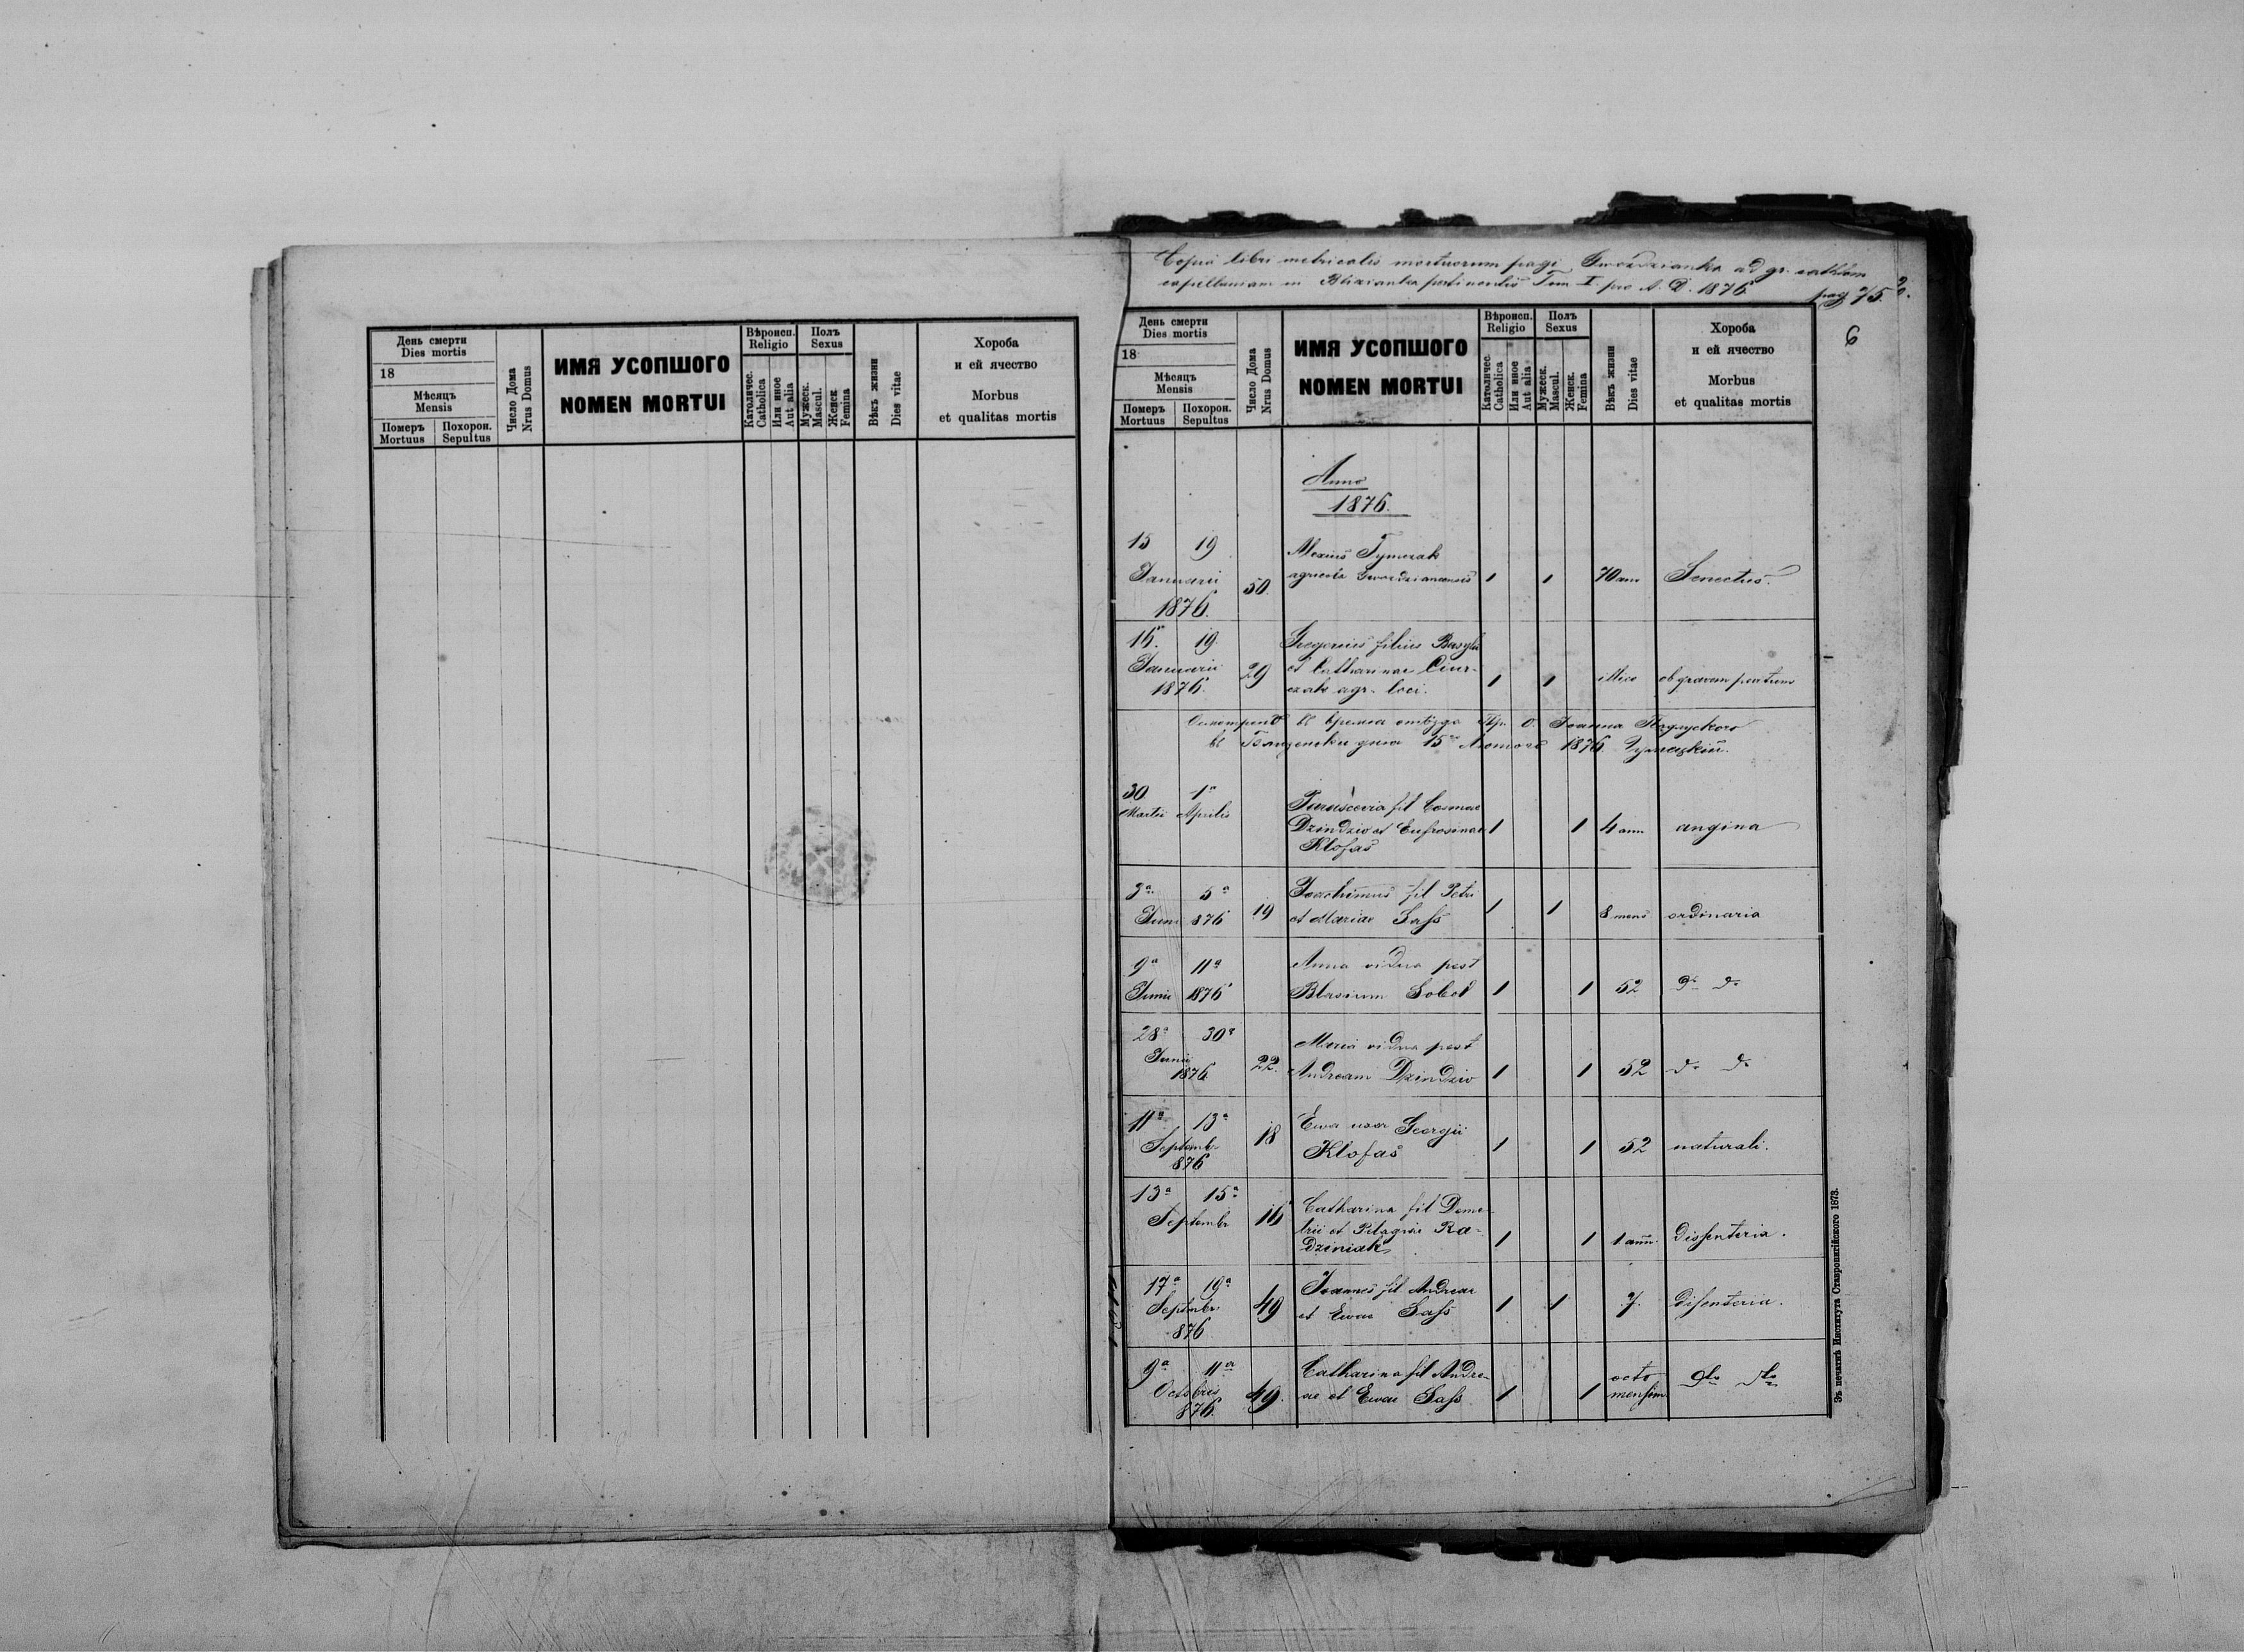 День смерти
Dies mortis
18
Мѣсяцъ
Mensis
Померъ
Mortuus
Похорон.
Sepultus
Число Дома
Nrus Domus
ИМЯ УСОПШОГО
NOMEN MORTUI
Вѣроисп.
Religio
Католичес.
Catholica
Или иное
Aut alia
Полъ
Sexus
Мужеск.
Mascul.
Женск
Femina
Вѣкъ жизни
Dies vitae
Хороба
и ей ячество
Morbus
et qualitas mortis
Copia libri metricalis mortuorum pagi Gwozdzianka ad gr. cathlem
capellaniam in Blizianka pertinentis Tom I. pro A. D. 1876
pag 75.
6
День смерти
Dies mortis
18
Мѣсяцъ
Mensis
Померъ
Mortuus
Похорон.
Sepultus
Число Дома
Nrus Domus
ИМЯ УСОПШОГО
NOMEN MORTUI
Вѣроисп.
Religio
Католичес.
Catholica
Или иное
Aut alia
Полъ
Sexus
Мужеск.
Mascul.
Женск.
Femina
Вѣкъ жизни
Dies vitae
Хороба
и ей ячество
Morbus
et qualitas mortis
Anno
1876.
15 19 Alexius Tymczak
Januarii 50. agricola Gwozdziancensis 1 1 70 ann Senectus.
1876.
16. 19 Gregorius filius Basylii
Januarii 29 et Catharinae Ciur- 1 1 ob gravem partum
1876. czak agr. loci.
15 1876
30 1a Parascevia fil Cosmae
Martii Aprilis Dzindzio et Eufrosinae 1 1 4 ann angina
Klofas
3a 5a Joachimus fil Petri
Juni 876 19 et Mariae Saſs 1 1 8 mens ordinaria
9a 11a Anna vidua post
Junii 1876 Blasium Sobol 1 1 52 do do
28a 30a Maria vidua post
Junii 22. Andream Dzindzio 1 1 52 do do
1876
11a 13a Ewa uxor Georgii
Septemb 18 Klofas 1 1 52 naturali.
876
13a 15a Catharina fil Deme-
Septembr 16 trii et Pelagiae Ra- 1 1 1 ann. Dissenteria.
dziniak
17a 19a Joannes fil Andreae
Septmbr 49 et Ewae Saſs 1 1 7. Disenteria.
876
9a 11a Catharina fil Andre- octo
Octobris 49. ae et Ewae Saſs 1 1 mensium dto dto
876.
Зъ печатнѣ Института Ставропигійского 1873.